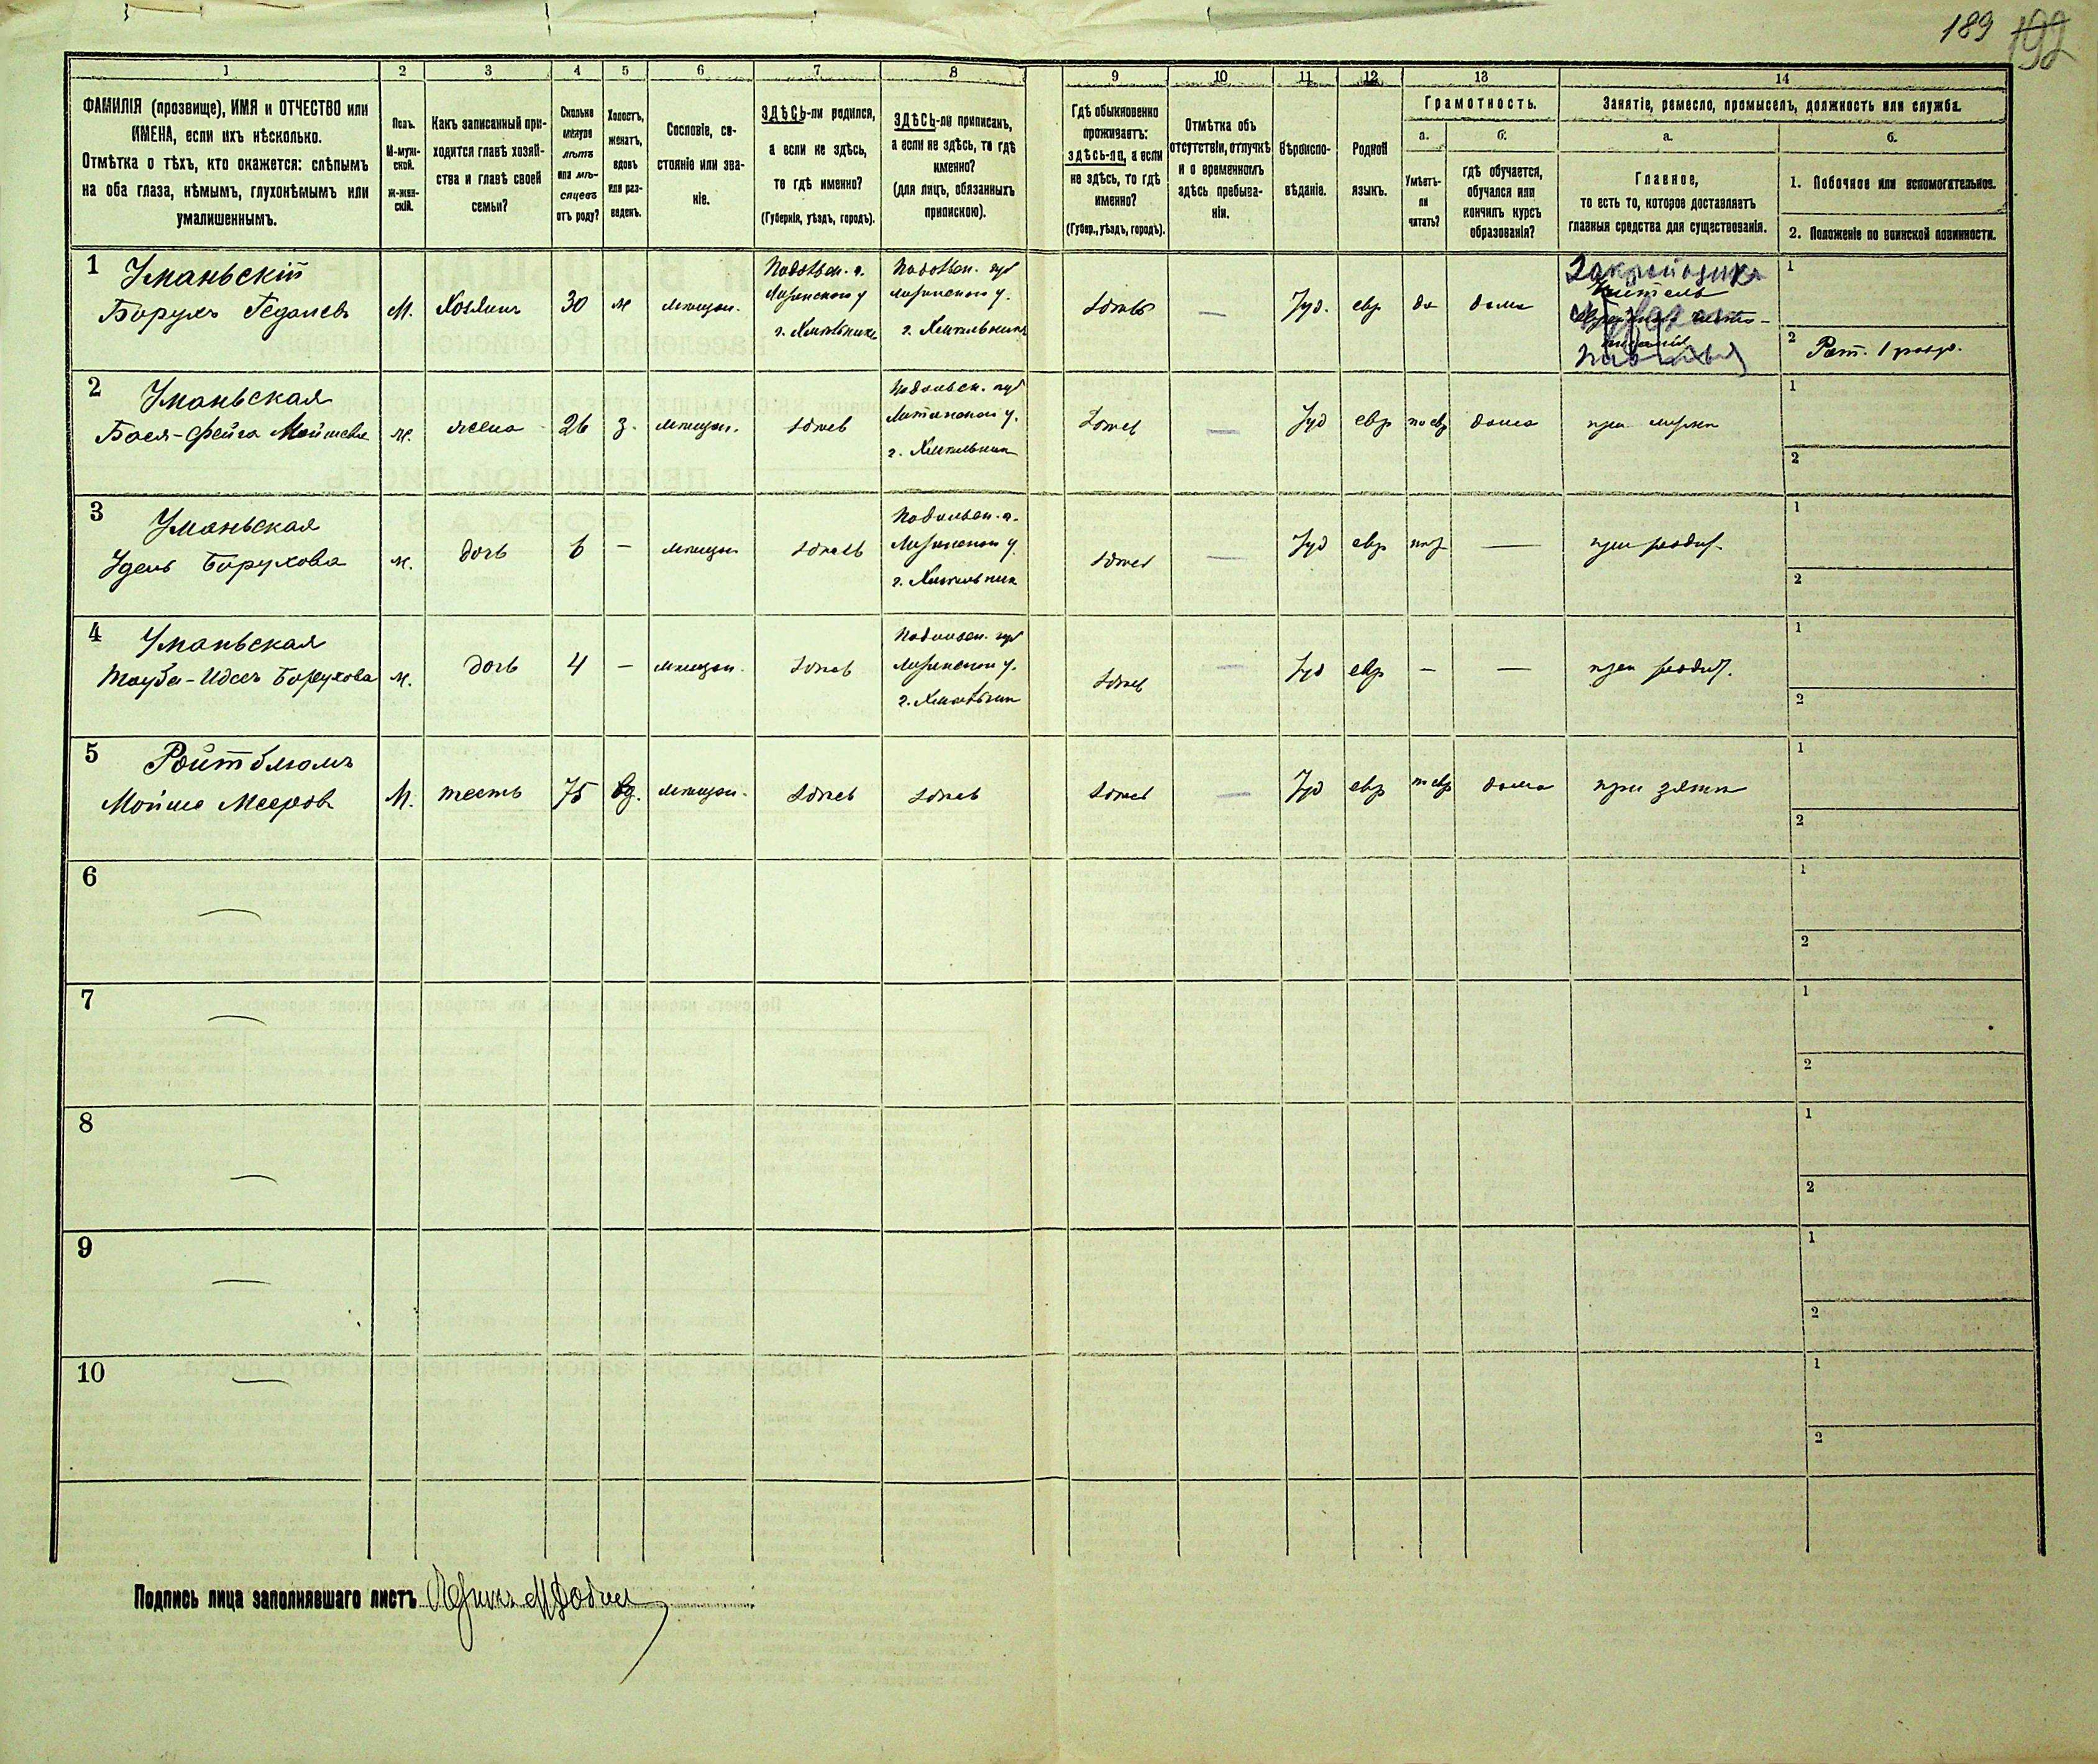 189 192
1 2 3 4 5 6 7 8 9 10 11 12 13 14
ФАМИЛІЯ (прозвище), ИМЯ и ОТЧЕСТВО или
ИМЕНА, если ихъ нѣсколько.
Отмѣтка о тѣхъ, кто окажется: слѣпымъ
на оба глаза, нѣмымъ, глухонѣмымъ или
умалишеннымъ.
Полъ.
М-муж-
ской.
Ж-жен-
скій.
Какъ записанный при-
ходится главѣ хозяй-
ства и главѣ своей
семьи?
Сколько
минуло
лѣтъ
или мѣ-
сяцевъ
отъ роду?
Холостъ,
женатъ,
вдовъ
или раз-
веденъ.
Сословіе, со-
стояніе или зва-
ніе.
ЗДѢСЬ-ли родился,
а если не здѣсь,
то гдѣ именно?
(Губернія, уѣздъ, городъ).
ЗДѢСЬ-ли приписанъ,
а если не здѣсь, то гдѣ
именно?
(для лицъ, обязанныхъ
припискою).
Гдѣ обыкновенно
проживаетъ:
здѣсь-ли, а если
не здѣсь, то гдѣ
именно?
(Губер., уѣздъ, городъ).
Отмѣтка объ
отсутствіи, отлучкѣ
и о временномъ
здѣсь пребыва-
ніи.
Вѣроиспо-
вѣданіе.
Родной
языкъ.
Грамотность.
а.
Умѣетъ-
ли
читать?
б.
гдѣ обучается,
обучался или
кончилъ курсъ
образованія?
Занятіе, ремесло, промыселъ, должность или служба.
а.
Главное,
то есть то, которое доставляетъ
главныя средства для существованія.
б.
1. Побочное или вспомогательное.
2. Положеніе по воинской повинности.
1 Уманьскій
Борухъ Гедалевъ
М.
Хозяинъ
30
ж
мѣщан.
Подольск. г.
Литинскаго у
г. Хмѣльникъ
Подольск. губ
Литинскаго у.
г. Хмѣльникъ
здѣсь
—
Іуд.
евр
да
дома
учитель
1
2 Рат. 1 разр.
2 Уманьская
Бася-Фейга Мойшева
ж.
жена
26
з.
мѣщан.
здѣсь
Подольск. губ
Литинскаго у.
г. Хмѣльник
здѣсь
—
Іуд
евр
по евр
дома
при мужѣ
1
2
3 Уманьская
Удель Борухова
ж.
дочь
6
—
мѣщан
здѣсь
Подольск. г.
Литинскаго у
г. Хмѣльник
здѣсь
—
Іуд
евр
—
при родит.
1
2
4 Уманьская
Тауба-Идесъ Борухова
ж.
дочь
4
—
мѣщан.
здѣсь
Подольск. губ
Литинскаго у.
г. Хмѣльник
здѣсь
—
Іуд
евр
—
—
при родит.
1
2
5 Ройтблюмъ
Мойше Мееров
М.
тесть
75
вд.
мѣщан.
здѣсь
здѣсь
здѣсь
—
Іуд
евр
по евр
дома
при зятѣ
1
2
6 —
1
2
7 —
1
2
8 —
1
2
9 —
1
2
10 —
1
2
Подпись лица заполнявшаго листъ